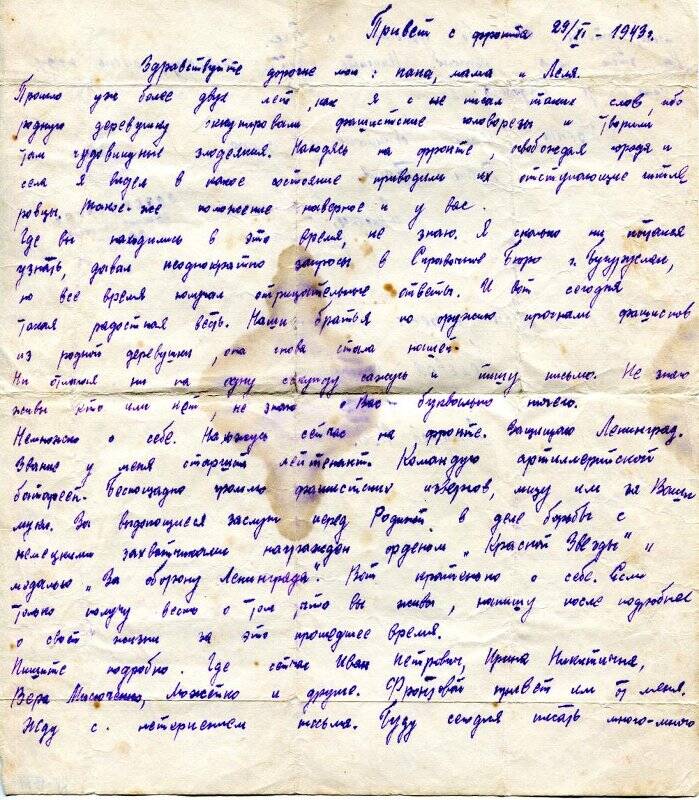 Привет с фронта 29/XI - 1943 г.
Здравствуйте дорогие мои: папа, мама и Леля.
Прошло уж более двух лет, как я с не писал таких слов, ибо
родную деревушку оккупировали фашистские головорезы и творили
там чудовищные злодеяния. Находясь на фронте, освобождая города и
села я видел в какое состояние приводили их отступающие гитле-
ровцы. Такое-же положение наверное и у вас.
Где вы находились в это время, не знаю. Я сколько ни пытался
узнать, давал неоднократно запросы в Справочное Бюро г. Бугуруслан,
но все время получал отрицательные ответы. И вот сегодня
такая радостная весть. Наши братья по оружию прогнали фашистов
из родной деревушки, она снова стала нашей.
Ни одну секунду сажусь и пишу письмо. Не знаю
живы кто или нет, не знаю о Вас буквально ничего.
Немножко о себе. Нахожусь сейчас на фронте. Защищаю Ленинград.
Звание у меня старший лейтенант. Командую артиллерийской
батареей. Беспощадно громлю фашистских извергов, мщу им за Ваши
муки. За выдающиеся заслуги перед Родиной в деле борьбы с
немецкими захватчиками награжден орденом „Красной Звезды" и
медалью „За оборону Ленинграда". Вот кратенько о себе. Если
только получу весть о том, что вы живы, напишу после подробнее
о своей жизни за это прошедшее время.
Пишите подробно. Где сейчас Иван Петрович, Ирина Никитична,
Вера и другие. Фронтовой привет им от меня.
Жду с нетерпением письма. Буду сегодня писать много-много